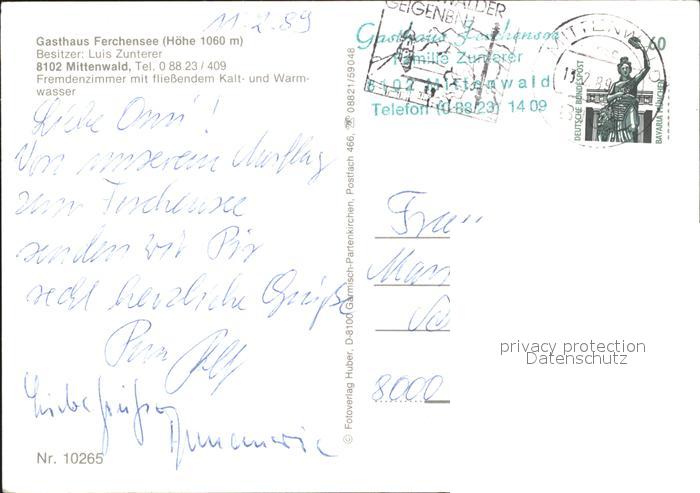 11.2.89
Gasthaus Ferchensee (Höhe 1060 m)
Besitzer: Luis Zunterer
8102 Mittenwald, Tel. 0 88 23 / 409
Fremdenzimmer mit fließendem Kalt- und Warm-
wasser
Liebe Omi!
Von unserem Ausflug
zum Ferchensee
senden wir Dir
recht herzliche Grüße
Liebe Grüße
Annemarie
Nr. 10265
© Fotoverlag Huber, D-8100 Garmisch-Partenkirchen, Postfach 466, ☎ 08821/59048
GEIGENB
Gasthaus Ferchensee
Familie Zunterer
8102 Mittenwald
Telefon (0 88/23) 14 09
MITTENW
60
DEUTSCHE BUNDESPOST
BAVARIA MÜNCHEN
Frau
8000
privacy protection
Datenschutz